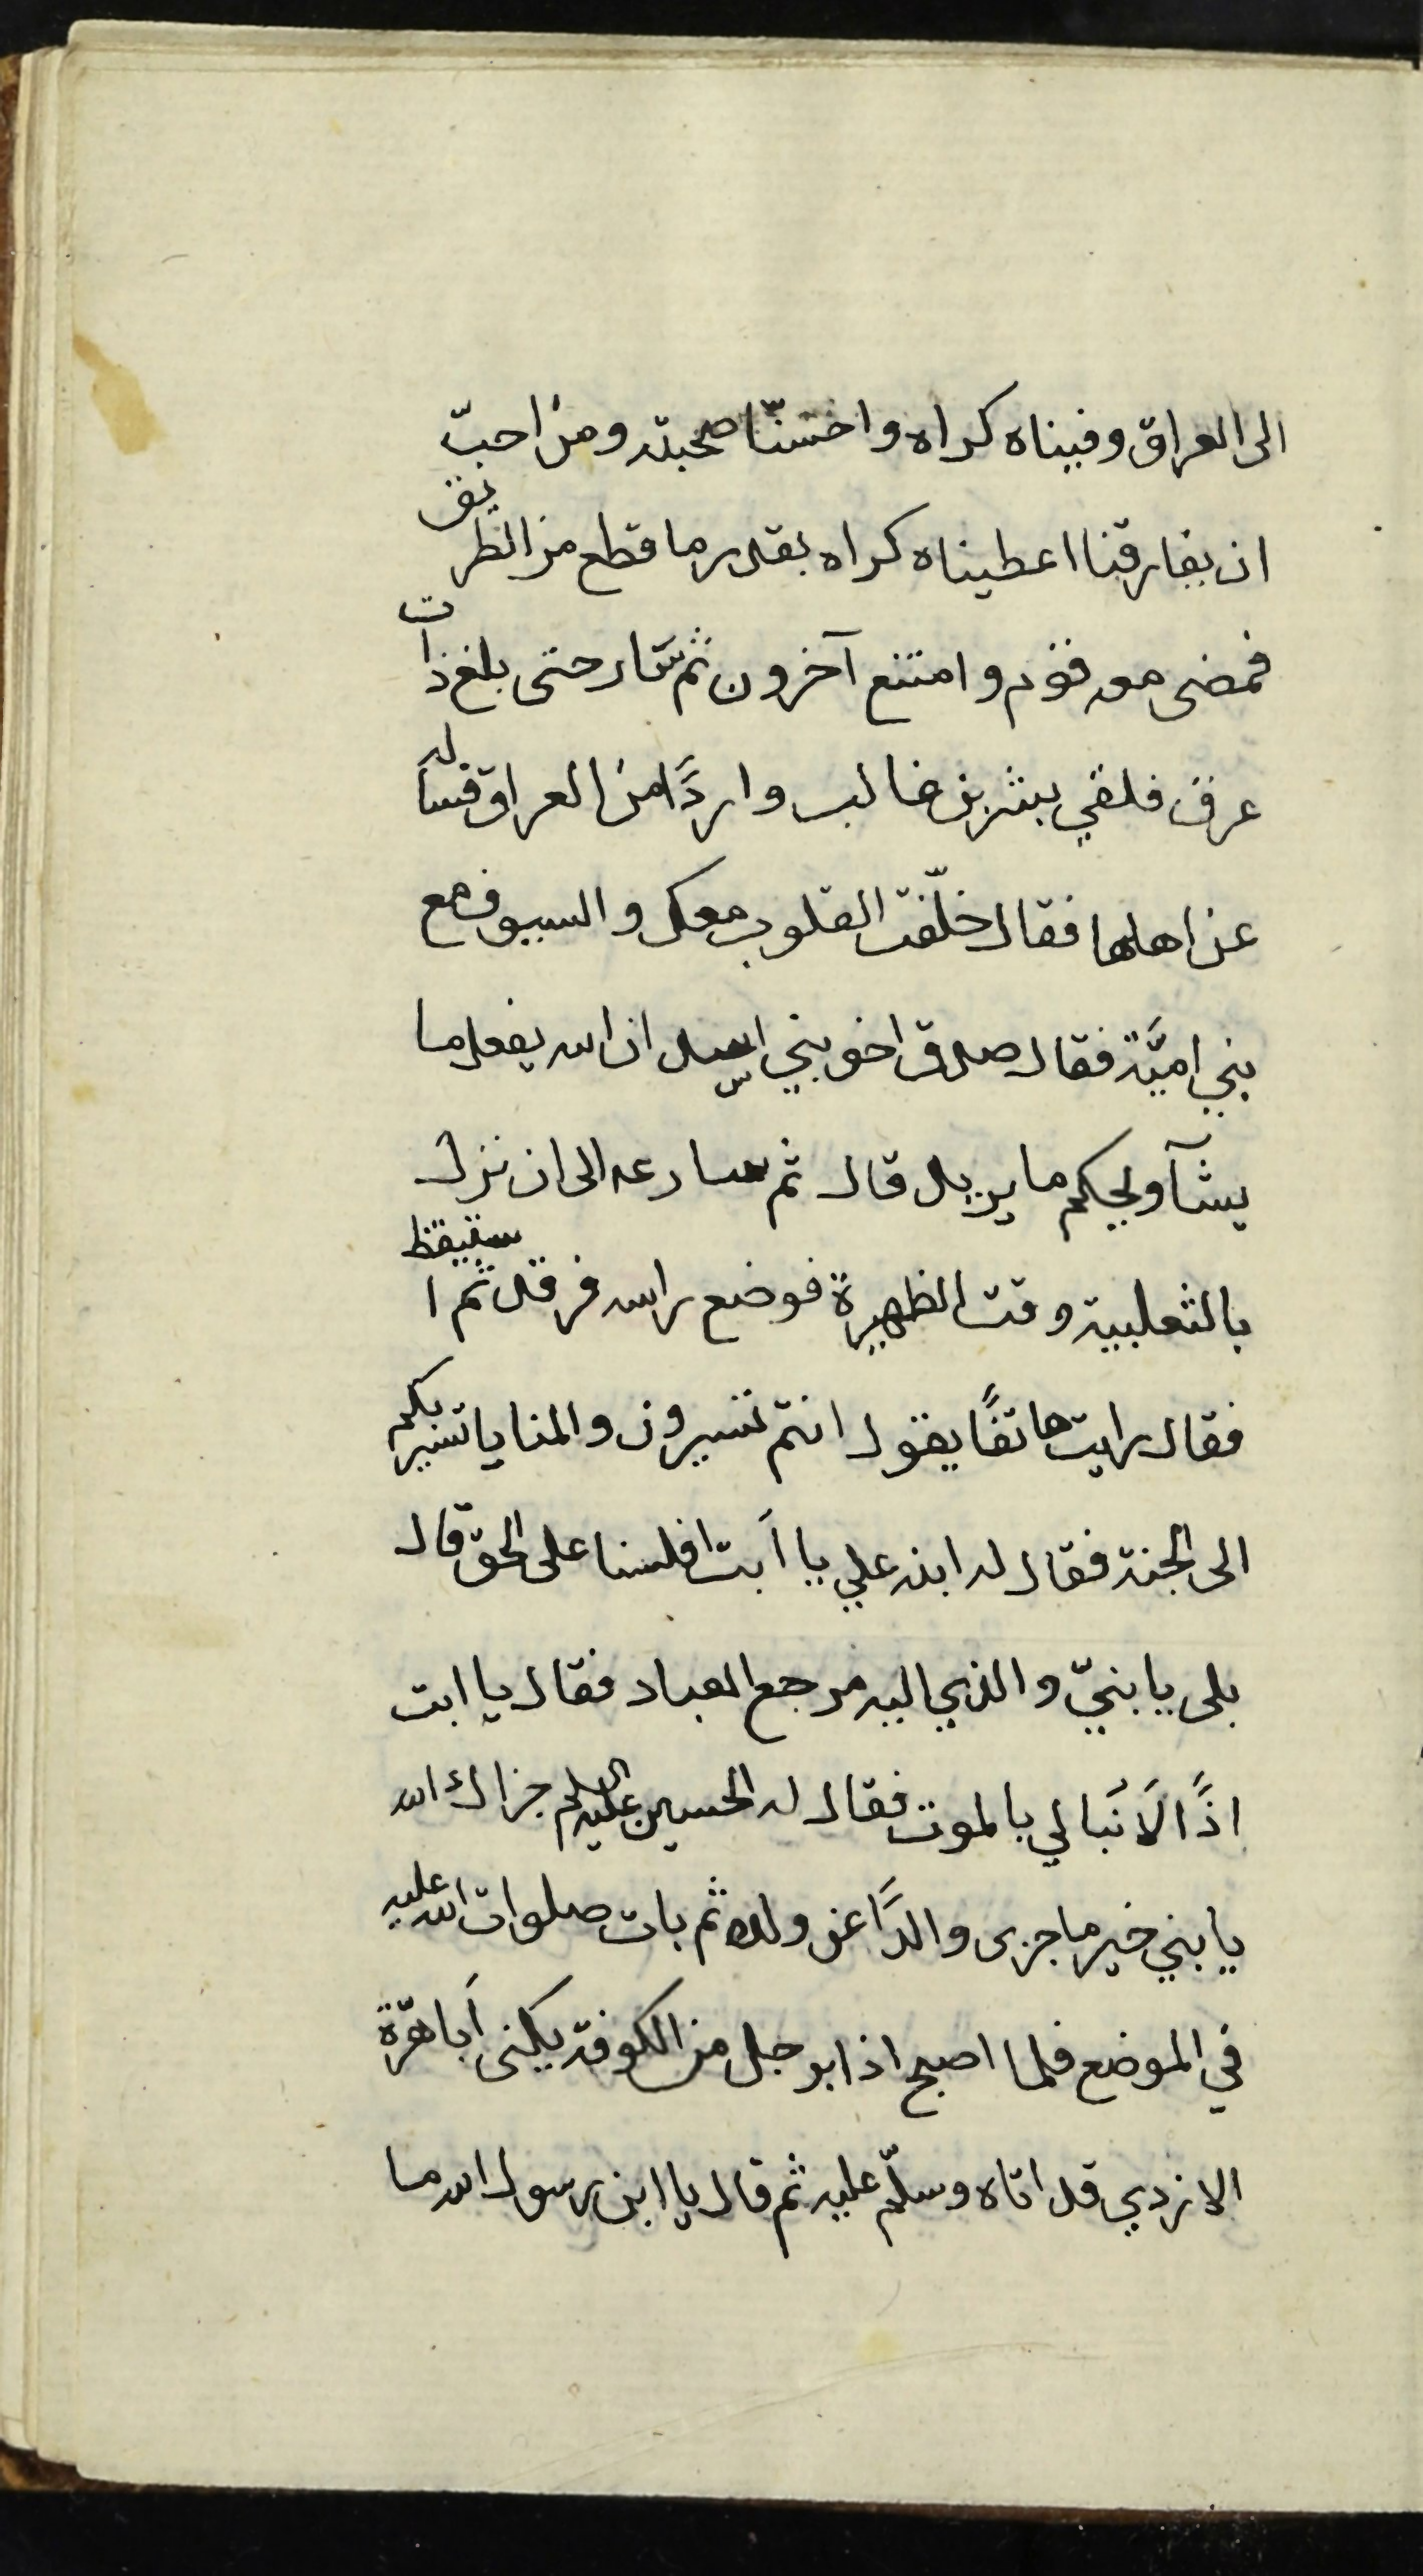 الى العراق وفيناه كراه واحسنّا صحبته ومن احبّ
ان يفارقنا اعطيناه كراه بقدر ما قطع من الطريق
فمضى معه قوم وامتنع آخرون ثم سار حتى بلغ ذات
عرق فلقي بشر بن غالب واردًا من العراق فساله
عن اهلها فقال خلّفت القلوب معك والسيوف مع
بني اميّة فقال صدق اخو بني اسد ان الله يفعل ما
يشآ ويحكم ما يريد قال ثم سار ع الى ان نزل
بالثعلبية وقت الظهيرة فوضع راسه فرقد ثم استيقظ
فقال رايت هاتفًا يقول انتم تسيرون والمنايا تسير بكم
الى الجنة فقال له ابنه علي يا أبت افلسنا على الحق قال
بلى يا بنيّ والذي اليه مرجع العباد فقال يا ابت
اذًا لَا نُبالي بالموت فقال له الحسين عليه السلم جزاك الله
يا بني خير ما جزى والدًا عن ولده ثم بات صلوات الله عليه
في الموضع فلما اصبح اذا برجل من الكوفة يكنى أبا هرّة
الازدي قد اتاه وسلّم عليه ثم قال يا ابن رسول الله ما